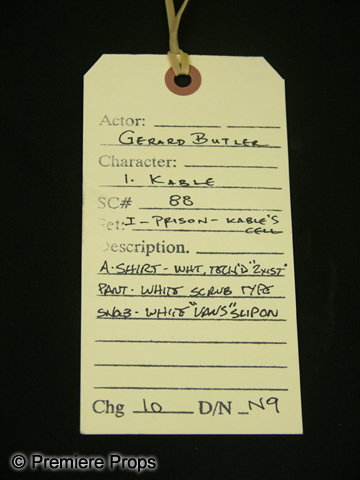 Actor:
GERARD BUTLER
Character:
1. KABLE
SC# 88
Set: I - PRISON - KABLE'S
CELL
Description.
A-SHIRT - WHT, TECH'D "2XIST"
PANT - WHITE SCRUB TYPE
WHITE "VANS" SLIP ON
Chg 10 D/N N9
© Premiere Props